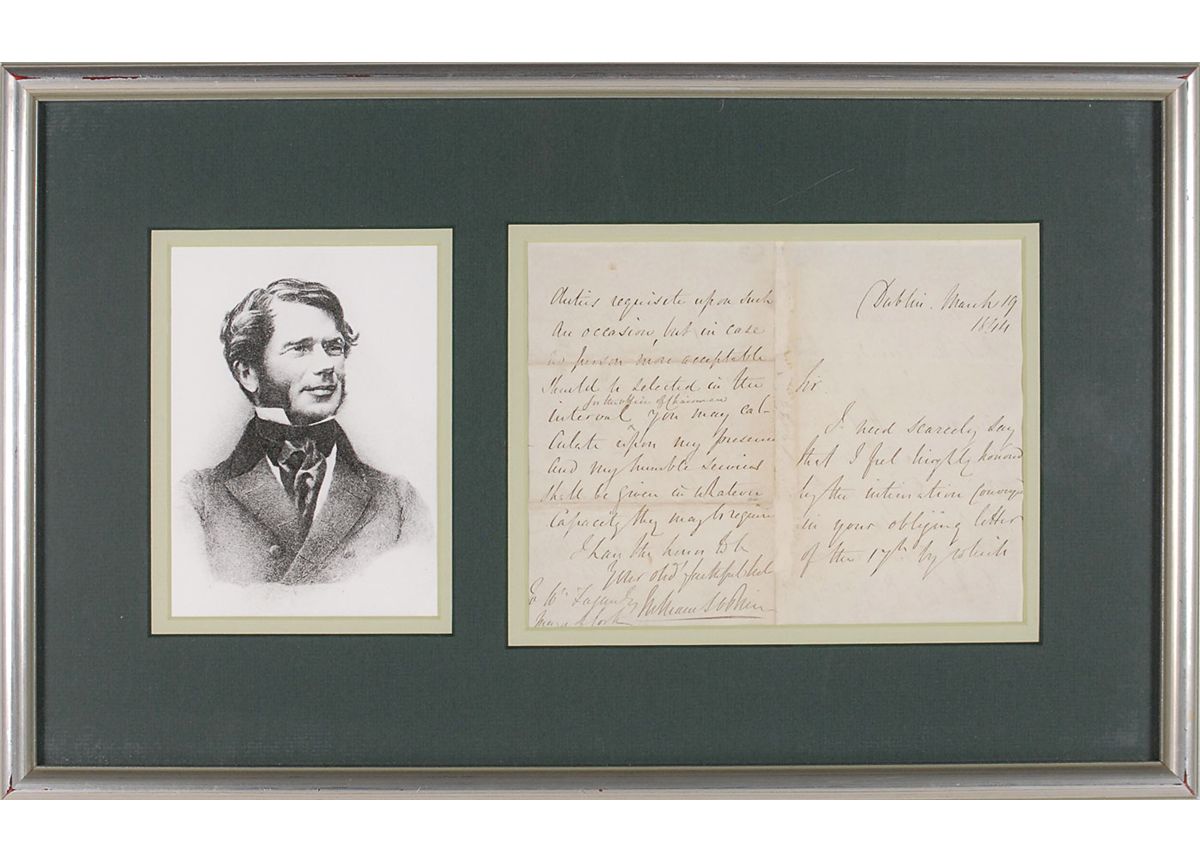 duties requisite upon such
an occasion, but in case
no person more acceptable
should be selected in the
for the office of Chairman
interval, you may cal-
culate upon my presence
and my humble services
shall be given in whatever
capacity they may be required
I have the honor to be
Your obt faithful
To Wm Fagan Esq William S O'Brien
Mayor of Cork
Dublin. March 19
1844
Sir
I need scarcely say
that I feel highly honored
by the intimation conveyed
in your obliging letter
of the 17th by which